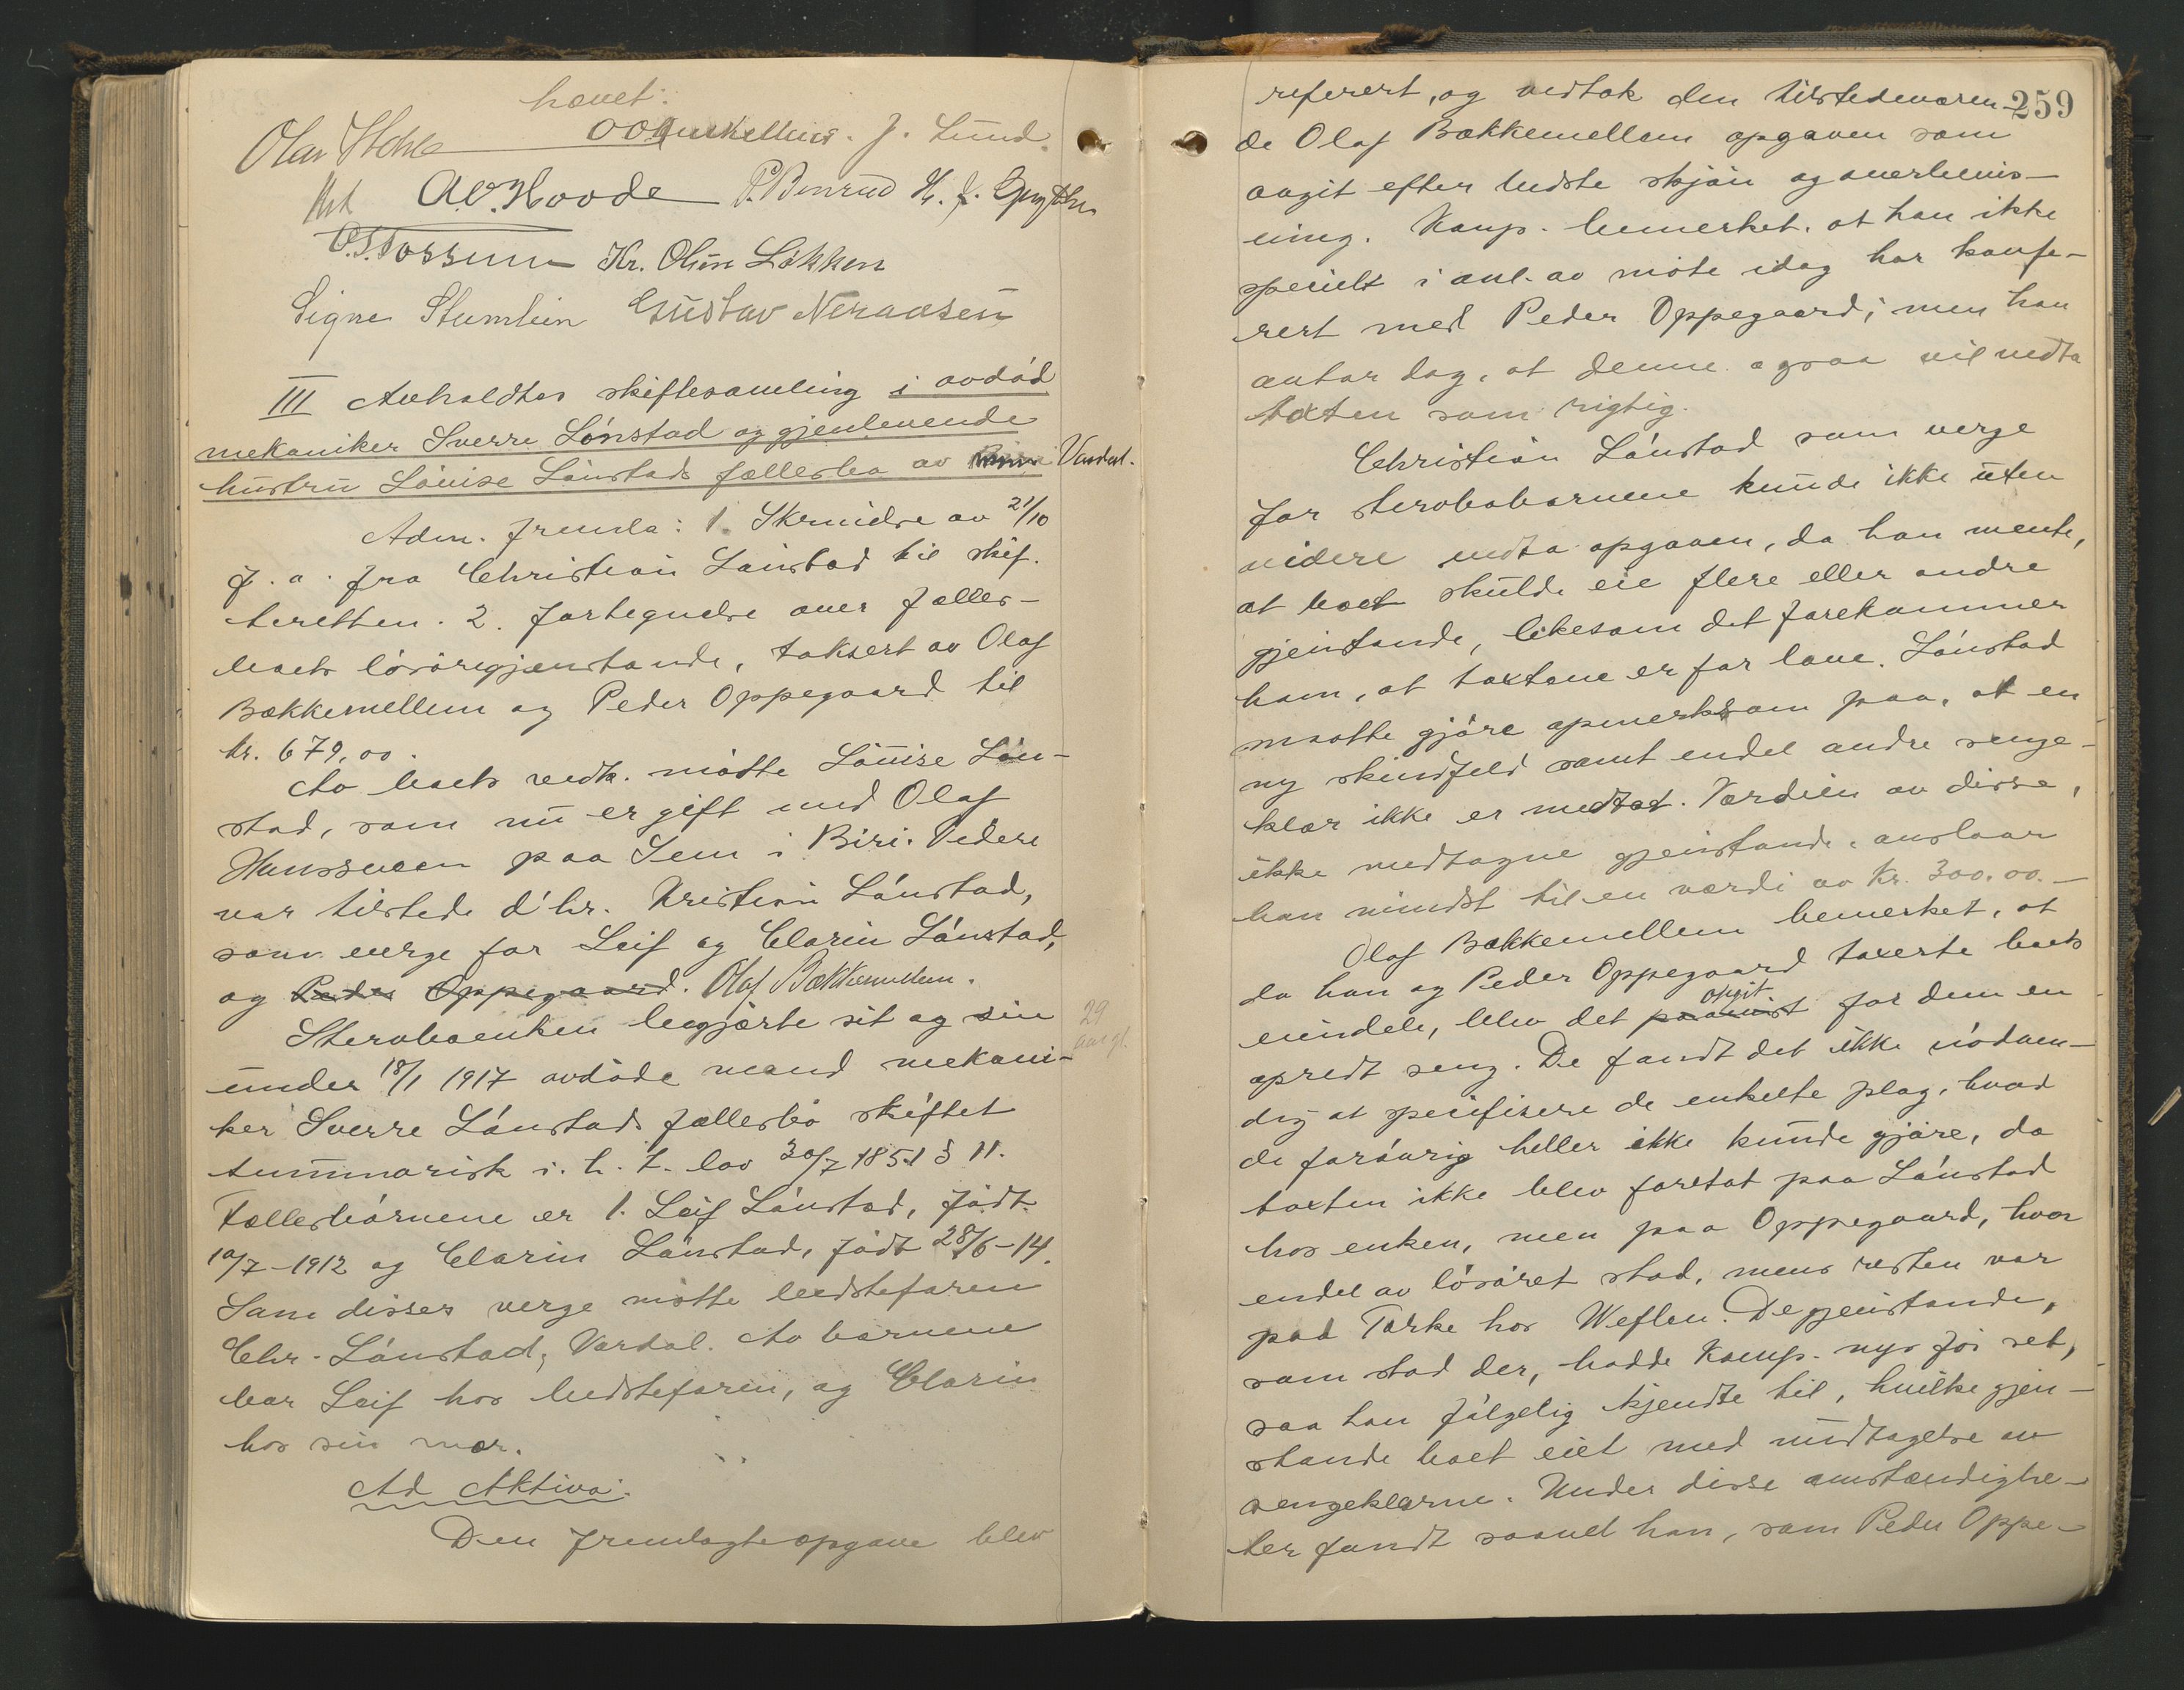 hævet.
J. Lund.
A.O. Hoode P. Benrud
O.S. Fossum Kr. Olsen Løkken
Signe Stumlien Gustav Neraasen
III Avholdtes skiftesamling i avdød
mekaniker Sverre Lønstad og gjenlevende
hustru Louise Lønstads fællesbo av Vardal.
Adm. fremla: 1. Skrivelse av 21/10
f. a. fra Christian Lønstad til skif-
teretten. 2. Fortegnelse over fælles-
boets løsøregjenstande, taksert av Olaf
Bækkemellem og Peder Oppegaard til
kr. 679,00.
Av boets vedk. møtte Louise Løn-
stad, som nu er gift med Olaf
Hanssveen paa Sem i Biri. Videre
var tilstede d'hr. Kristian Lønstad,
som verge for Leif og Clarin Lønstad,
og Peder Oppegaard. Olaf Bækkemellem.
Stervboenken begjærte sit og sin
29
aar gl.
under 18/1 1917 avdøde mand mekani-
ker Sverre Lønstads fællesbo skiftet
summarisk i. h. t. lov 30/7 1851 § 11.
Fællesbørnene er 1. Leif Lønstad, født
10/7-1912 og Clarin Lønstad, født 28/6-14.
Som disses verge møtte bedstefaren
Chr. Lønstad, Vardal. Av børnene
bor Leif hos bedstefaren, og Clarin
hos sin mor.
Ad Aktiva.
Den fremlagte opgave blev
259
referert, og vedtok den tilstedeværen-
de Olaf Bækkemellem opgaven som
avgit efter bedste skjøn og overbevis-
ning. Komp. bemerket, at han ikke
specielt i anl. av møte idag har konfe-
rert med Peder Oppegaard; men han
antar dog, at denne ogsaa vil vedta
taxten som rigtig.
Christian Lønstad som verge
for stervbobørnene kunde ikke uten
videre vedta opgaven, da han mente,
at boet skulde eie flere eller andre
gjenstande, likesom det forekommer
ham, at taxtene er for lave. Lønstad
maatte gjøre opmerksom paa, at en
ny skindfeld samt endel andre senge-
klær ikke er medtat. Værdien av disse,
ikke medtagne gjenstande, anslaar
han mindst til en værdi av kr. 300.00.-
Olaf Bækkemellem bemerket, at
da han og Peder Oppegaard taxerte boets
opgit
eiendele, blev det paavist for dem en
opredt seng. De fandt det ikke nødven-
dig at specifisere de enkelte plag, hvad
de forøvrig heller ikke kunde gjøre, da
taxten ikke blev foretat paa Lønstad
hos enken, men paa Oppegaard, hvor
endel av løsøret stod, mens resten var
paa Torke hos Weflen. De gjenstande,
som stod der, hadde Komp. nys før set,
saa han følgelig kjendte til, hvilke gjen-
stande boet eiet med undtagelse av
sengeklærne. Under disse omstændighe-
ter fandt saavel han, som Peder Oppe-